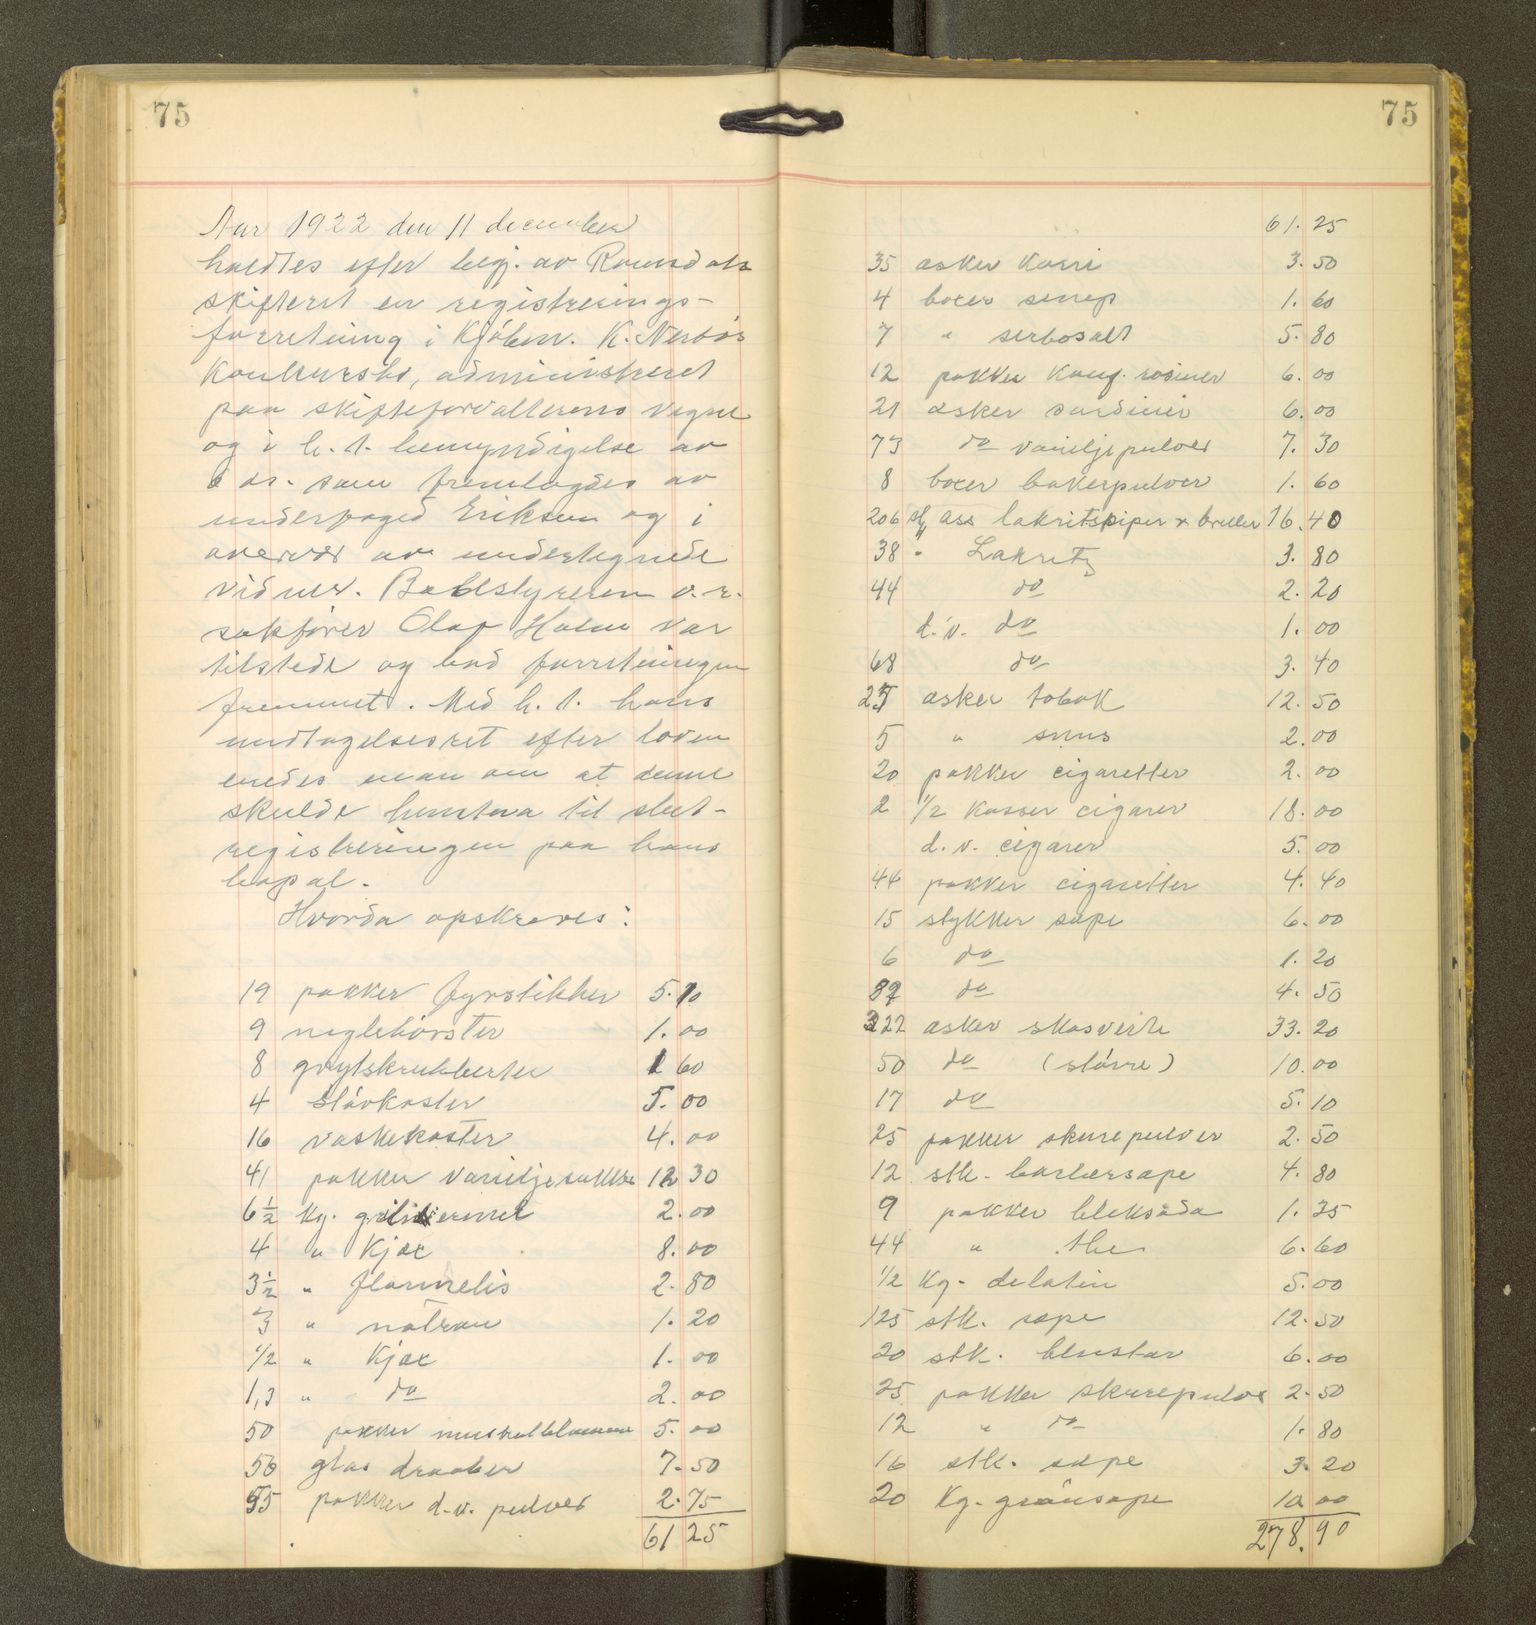 75
Aar 1922 den 11 december
holdtes efter beg. av Romsdals
skifteret en registrerings-
forretning i Kjøbm. K. Nerbøs
Konkursbo, administreret
paa skifteforvalterens vegne
og i h. t. bemyndigelse av
ds. som fremlagdes av
underfoged Eriksen og i
overvær av undertegnede
vidner. Bobestyreren o.r.
sakfører Olaf Holm var
tilstede og bad forretningen
fremmet. Med h. t. hans
undtagelsesret efter loven
enedes man om at denne
skulde henstaa til slut-
registreringen paa hans
bopæl.
Hvorda opskreves:
19 pakker fyrstikker 5.10
9 neglebørster 1.00
8 grytskrubberter 1 60
4 støvkoster 5.00
16 vaskekoster 4.00
41 pakker vaniljesukker 12 30
6 1/2 kg. 2.00
4 " Kjæx 8.00
3 1/2 " flormelis 2.80
3 " natron 1.20
1/2 " Kjæx 1.00
1,3 " do 2.00
50 pakker muskatblomme 5.00
50 glas draaber 7.50
55 pakker d.v. pulver 2.75
61 25
75
61.25
35 æsker karri 3.50
4 boxer senep 1.60
7 " serbosalt 5.80
12 pakker Kang. rosiner 6.00
21 æsker sardiner 6.00
73 do vaniljepulver 7.30
8 boxer bakerpulver 1.60
206 ass lakritspiper & briller 16.40
38 " Lakritz 3.80
44 do 2.20
d.v. do 1.00
68 do 3.40
25 æsker tobak 12.50
5 " snus 2.00
20 pakker cigaretter 2.00
2 1/2 kasser cigarer 18.00
d.v. cigarer 5.00
44 pakker cigaretter 4.40
15 stykker sæpe 6.00
6 do 1.20
do 4.50
322 æsker skosverte 33.20
50 do (større) 10.00
17 do 5.10
25 pakker skurepulver 2.50
12 stk. barbersæpe 4.80
9 pakker bleksoda 1.35
44 " the 6.60
1/2 Kg. delatin 5.00
125 stk. sæpe 12.50
20 stk. 6.00
25 pakker skurepulver 2.50
12 " do 1.80
16 stk. sæpe 3.20
20 Kg. grønsæpe 10 00
278.90